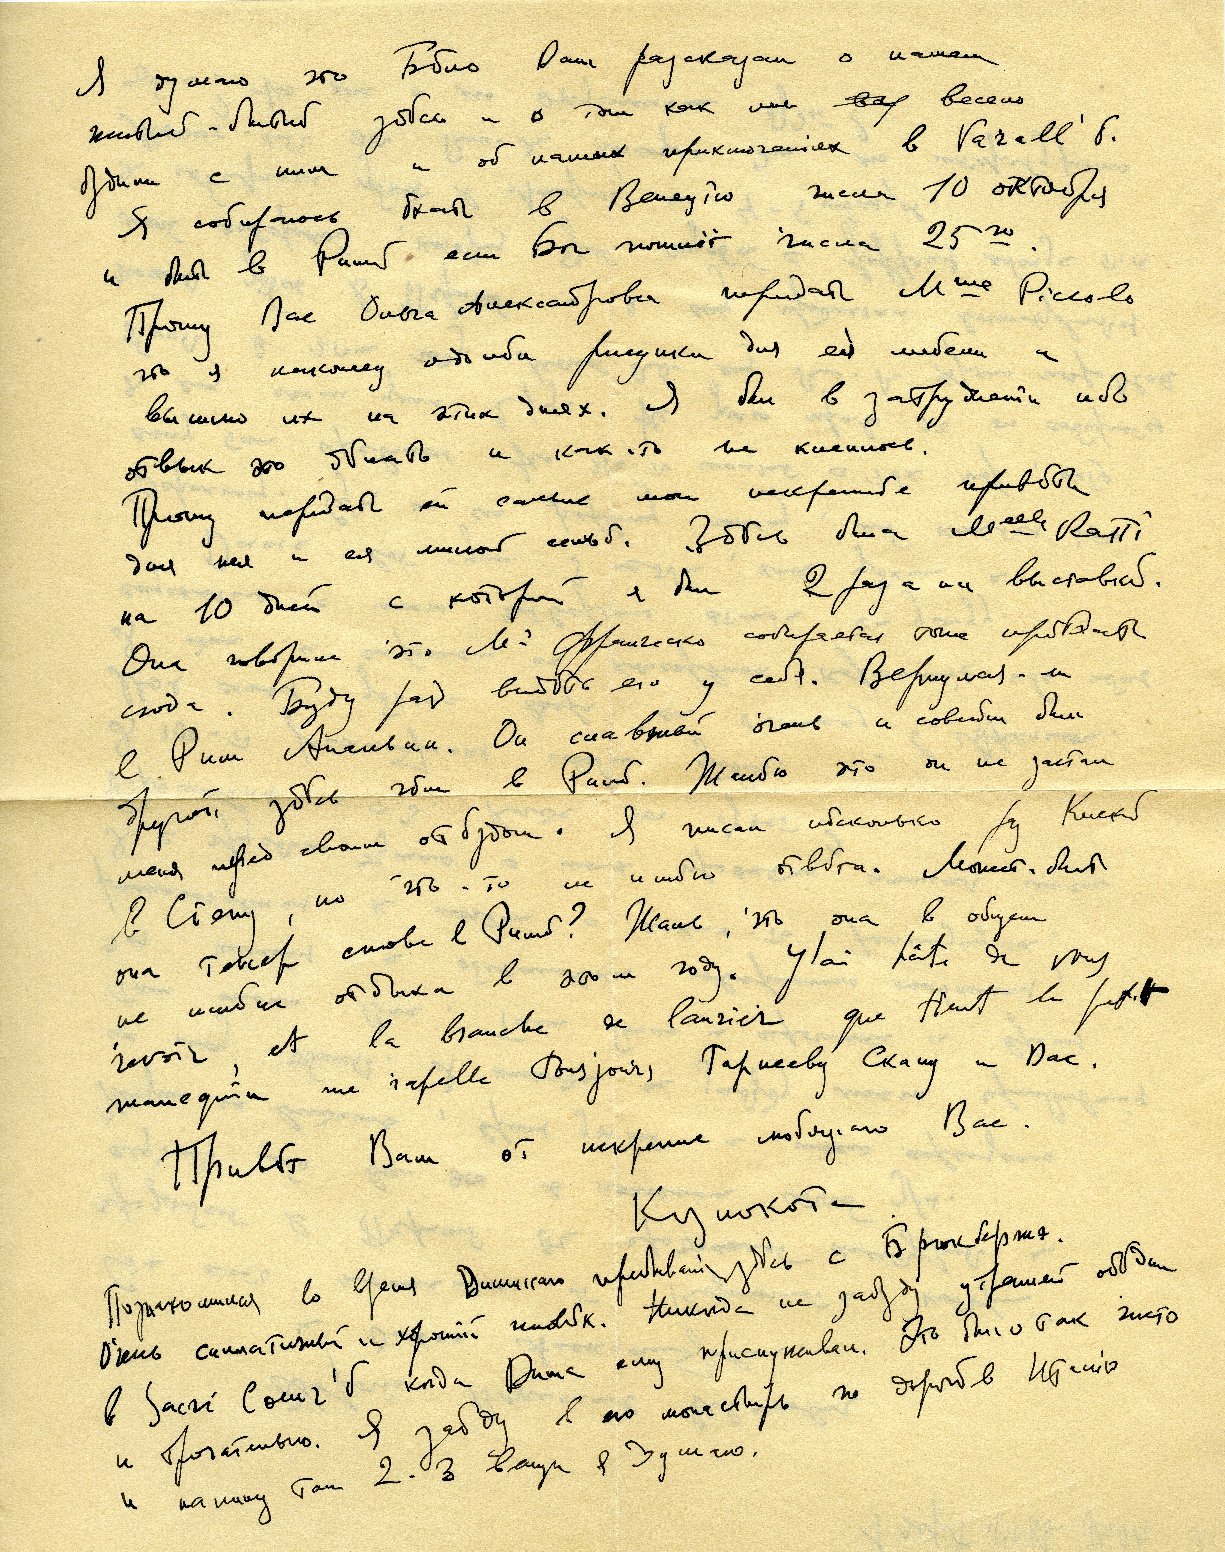 Я думаю что Вам рассказал о нашем
житьѣ-бытьѣ здѣсь и о том как мы весело
ѣздили с ним и об наших приключенiях в Varall'ѣ.
Я собираюсь ѣхать в Венецiю числа 10 октября
и быть в Римѣ если Бог пошлёт числа 25го.
Прошу Вас Ольга Александровна передать Mme Piccolo
что я наконец рисунки для её мебели и
вышлю их на этих днях. Я был в затрудненiи ибо
отвык это дѣлать и как-то не клеилось.
Прошу передать ей самые мои искреннiе привѣты
для нея и ея милой семьѣ. Здѣсь была Melle Ratti
на 10 дней с которой я был 2 раза на выставкѣ.
Она говорила что Mr Франческо собирается тоже прiѣхать
сюда. Буду рад видѣть его у себя. Вернулся-ли
в Рим Ананьин. Он славный очень и совсѣм был
другой здѣсь чѣм в Римѣ. Жалѣю что он не застал
меня перед своим отъѣздом. Я писал нѣсколько раз
в Сiену, но что-то не имѣю отвѣта. Может-быть
она теперь снова в Римѣ? Жаль, что она в общем
не имѣла отдыха в этом году. J'ai hâte de vous
revoir, et la branche de laurier que tient le petit
manequin me rapelle toujours Тарпееву Скалу и Вас.
Привѣт Вам от искренне любящаго Вас.
Познакомился во время Диминаго пребыванiя здѣсь с
Очень симпатичный и хорошiй человѣк. Никогда не забуду утренней обѣдни
в Sacré Coeur'ѣ когда Дима ему прислуживал. Это было так чисто
и трогательно. Я заѣду в его монастырь по дорогѣ в Италiю
и напишу там 2-3 вещи я думаю.